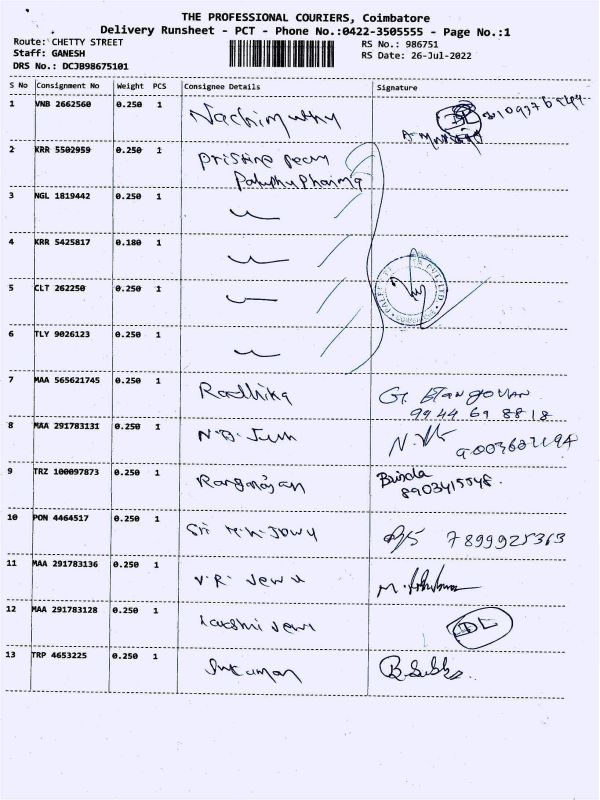 THE PROFESSIONAL COURIERS, Coimbatore
Delivery Runsheet - PCT - Phone No.:0422-3505555 - Page No.:1
Route: CHETTY STREET
RS No.: 986751
Staff: GANESH
RS Date: 26-Jul-2022
DRS No.: DCJB98675101
S No Consignment No Weight PCS Consignee Details Signature
1 VNB 2662560 0.250 1 Nachimuthu
2 KRR 5502959 0.250 1 Pristine
Pharma
3 NGL 1819442 0.250 1
4 KRR 5425817 0.180 1
5 CLT 262250 0.250 1
6 TLY 9026123 0.250 1
7 MAA 565621745 0.250 1 Radhika G. Elangovan
99 44 69 88 18
8 MAA 291783131 0.250 1
9 TRZ 100097873 0.250 1 Brinda
8903415548.
10 PON 4464517 0.250 1 Sri 7899925363
11 MAA 291783136 0.250 1 V.R.
12 MAA 291783128 0.250 1 Lakshmi
13 TRP 4653225 0.250 1